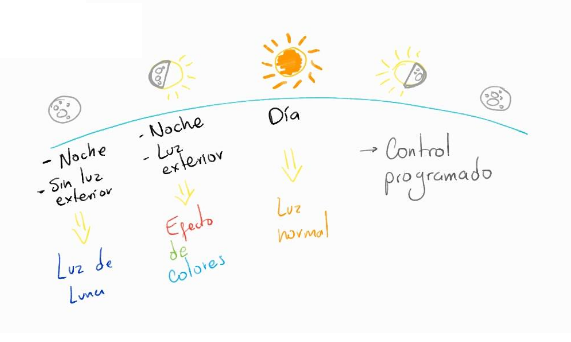 - Noche
- Sin luz
exterior
Luz de
Luna
- Noche
- Luz
exterior
Efecto
de
colores
Día
Luz
normal
→ Control
programado